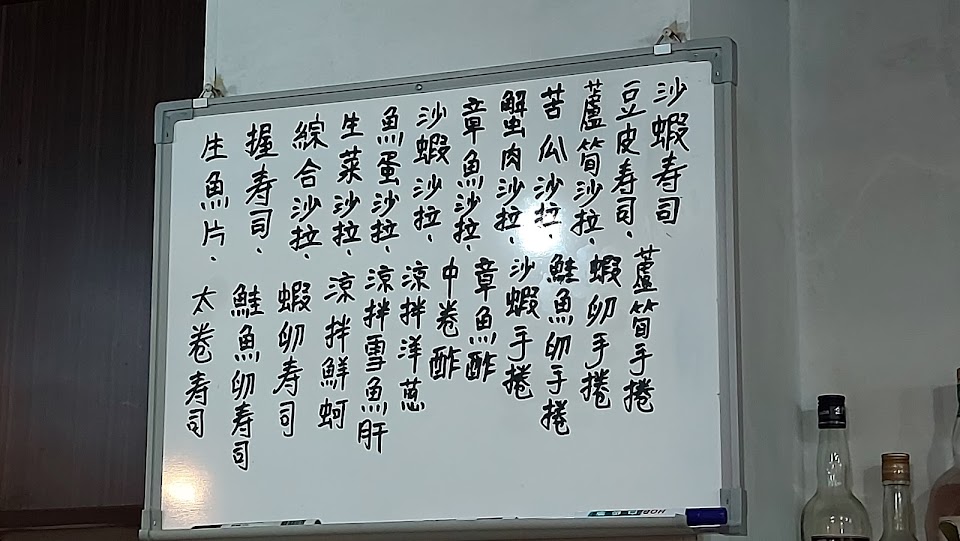 沙蝦寿司、
豆皮寿司、
蘆筍沙拉、
苦瓜沙拉、
蟹肉沙拉、
章魚沙拉、
沙蝦沙拉、
魚蛋沙拉、
生菜沙拉、
綜合沙拉、
握寿司、
生魚片、
蘆筍手捲
蝦卵手捲
鮭魚卵手捲
沙蝦手捲
章魚酢
中卷酢
涼拌洋葱
涼拌雪魚肝
涼拌鮮蚵
蝦卵寿司
鮭魚卵寿司
太卷寿司